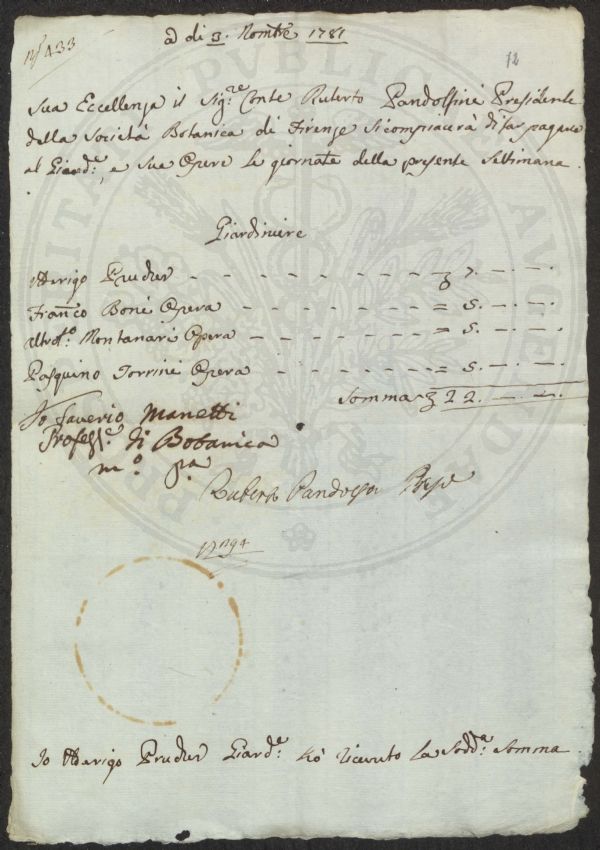 N.º 433
a di 3. Nombre 1781
12
Sua Eccellenza il Sig:re Conte Ruberto Pandolfini Presidente
della Società Botanica di Firenze Si compiacerà di far pagare
al Giard:e, e Sue Opere le giornate della presente Settimana
Giardiniere
Arrigo Prucker - - - - - - - - - 7. - . -
Franco Boni Opera - - - - - - - = 5. - . -
Montanari Opera - - - - - - - = 5. - . -
Pasquino Torrini Opera - - - - - - = 5. - . -
Somma 22. - . -
Io Saverio Manetti
Profess:e di Botanica
m:o pa
Ruberto Pandolfini Prese
N 94
Io Arrigo Prucker Giard:e hò ricevuto la Sodd:a Somma
PUBLICAE
AUGENDAE